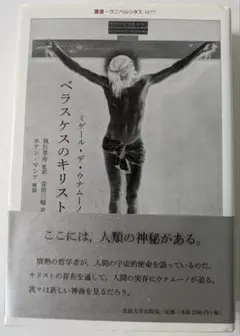 叢書・ウニベルシタス 1077
ベラスケスのキリスト
ミゲール・デ・ウナムーノ
執行草舟 監訳
安倍三﨑 訳
ホアン・マシア 解説
ここには、人類の神秘がある。
情熱の哲学者が、人間の宇宙的使命を語っているのだ。
キリストの存在を通して、人間の実存にウナムーノが迫る。
我々は新しい神曲を見るだろう。
法政大学出版局